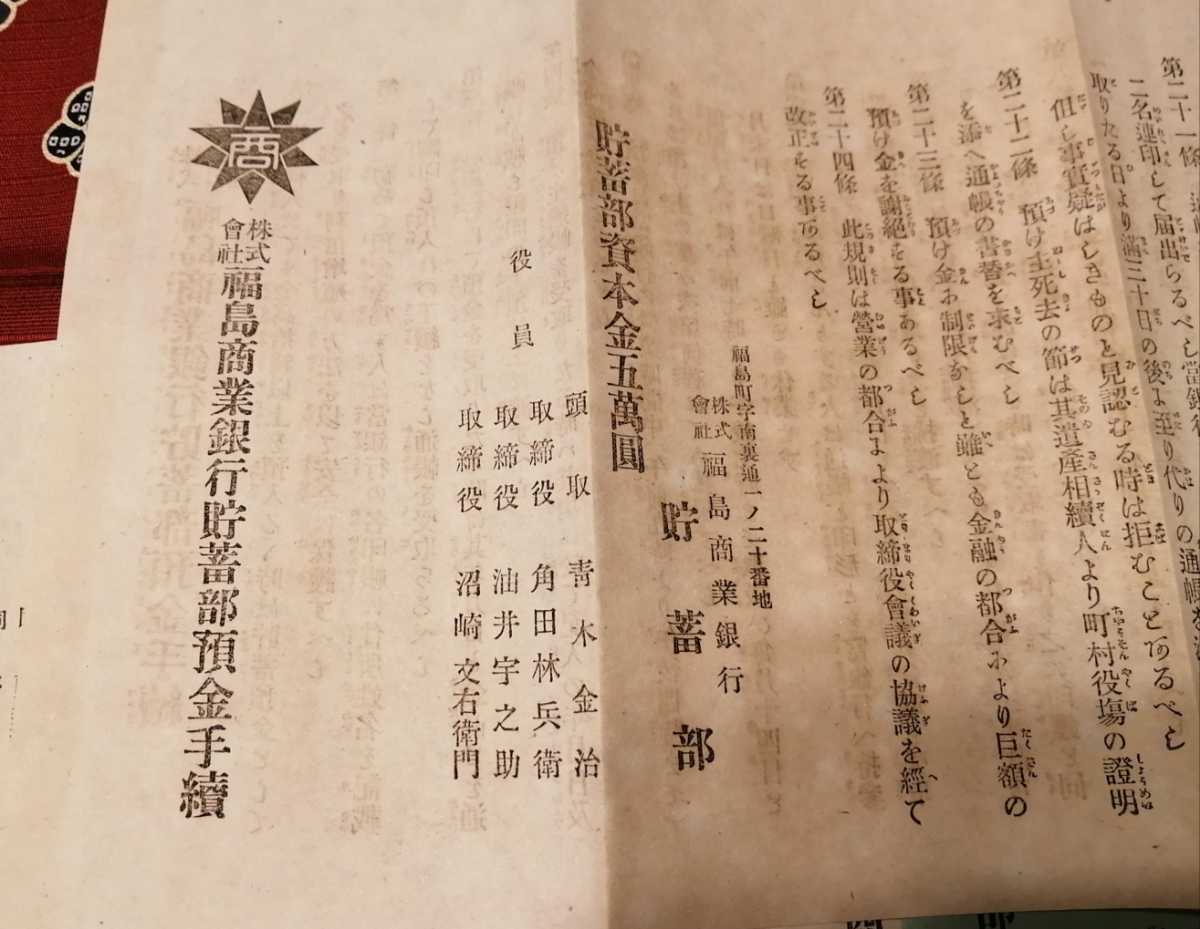 第二十一條
二名連印して届出らるべし當銀行
取りたる日より滿三十日の後よ至り代りの通帳を
但し事實疑はしきものと見認むる時は拒むことあるべし
第二十二條 預け主死去の節は其遺產相續人より町村役塲の證明
を添へ通帳の書替を求むべし
第二十三條 預け金ふ制限なしと雖とも金融の都合ふより巨額の
預け金を謝絕する事あるべし
第二十四條 此規則は營業の都合よより取締役會議の協議を經て
改正する事あるべし
福島町字南裏通一ノ二十番地
株式會社福島商業銀行
貯蓄部
貯蓄部資本金五萬圓
役員
頭取 靑木金治
取締役 角田林兵衛
取締役 油井宇之助
取締役 沼崎文右衛門
商
株式會社福島商業銀行貯蓄部預金手續